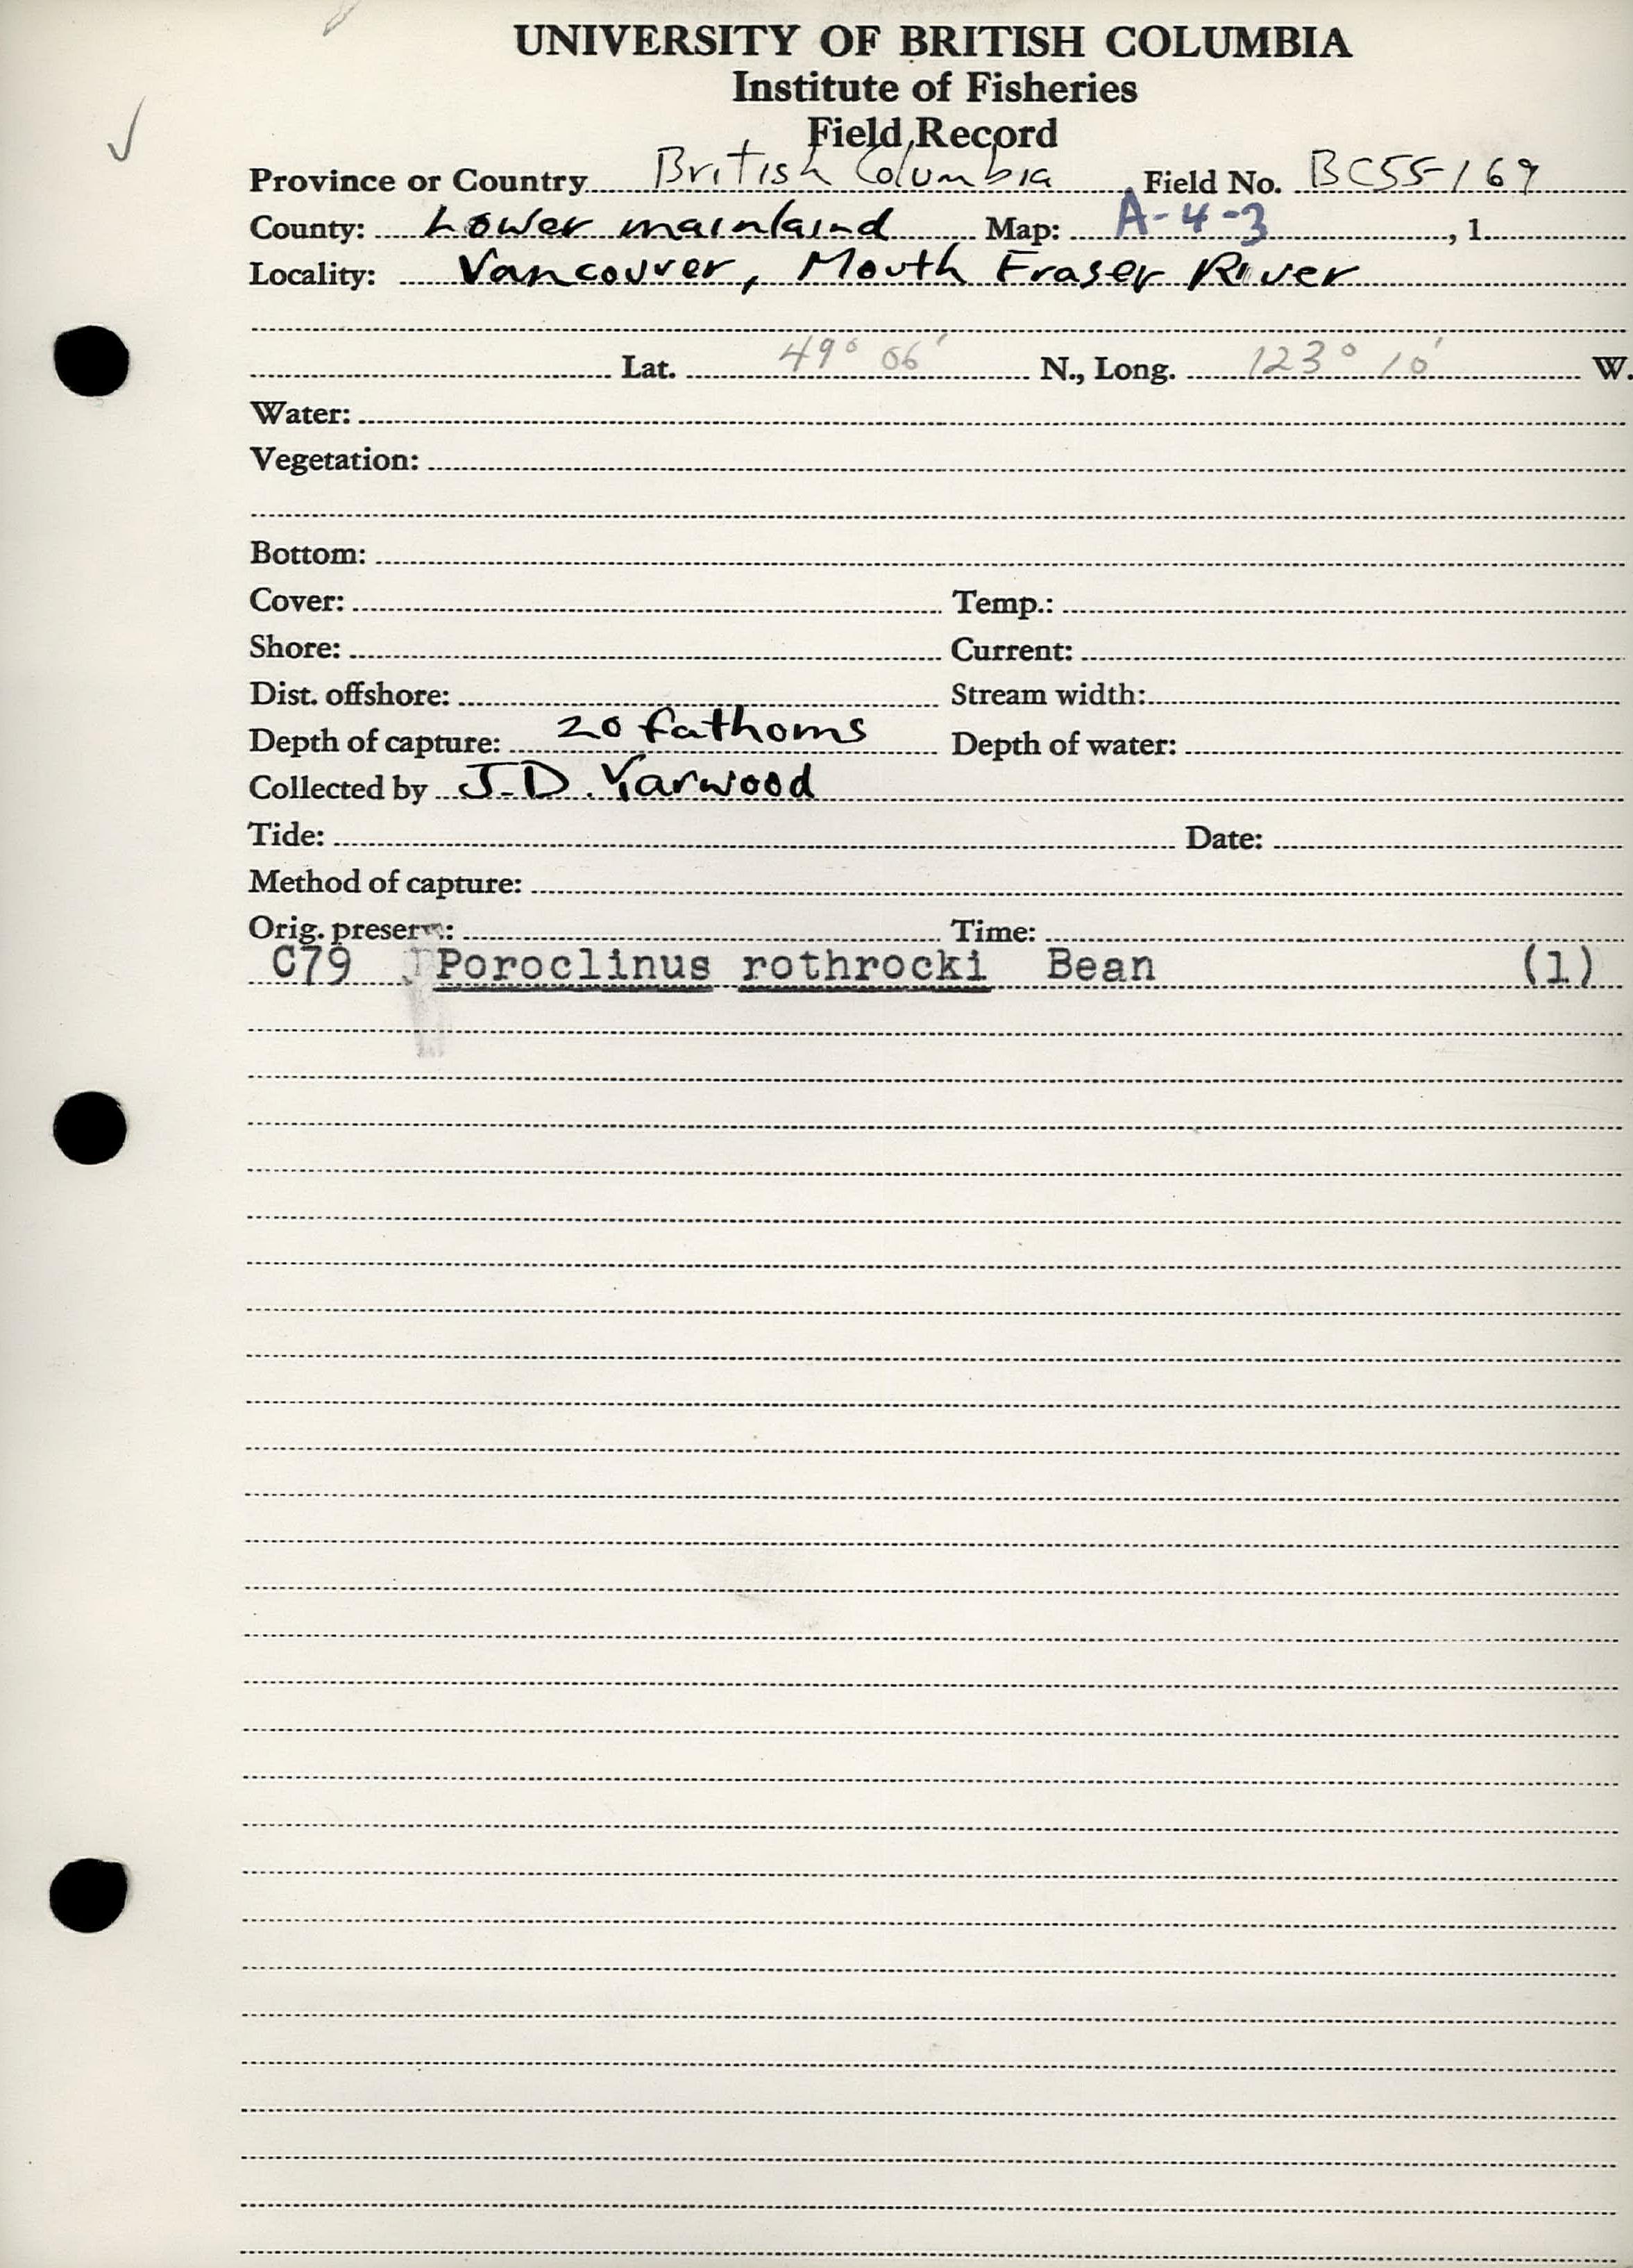 UNIVERSITY OF BRITISH COLUMBIA
Institute of Fisheries
Field Record
Province or Country British Columbia Field No. BC55-169
County: Lower mainland Map: A-4-3 , 1
Locality: Vancouver, Mouth Fraser River
Lat. 49° 06' N., Long. 123° 10' W.
Water:
Vegetation:
Bottom:
Cover: Temp.:
Shore: Current:
Dist. offshore: Stream width:
Depth of capture: 20 fathoms Depth of water:
Collected by J.D. Yarwood
Tide: Date:
Method of capture:
Orig. preserv.: Time:
C79 Poroclinus rothrocki Bean (1)